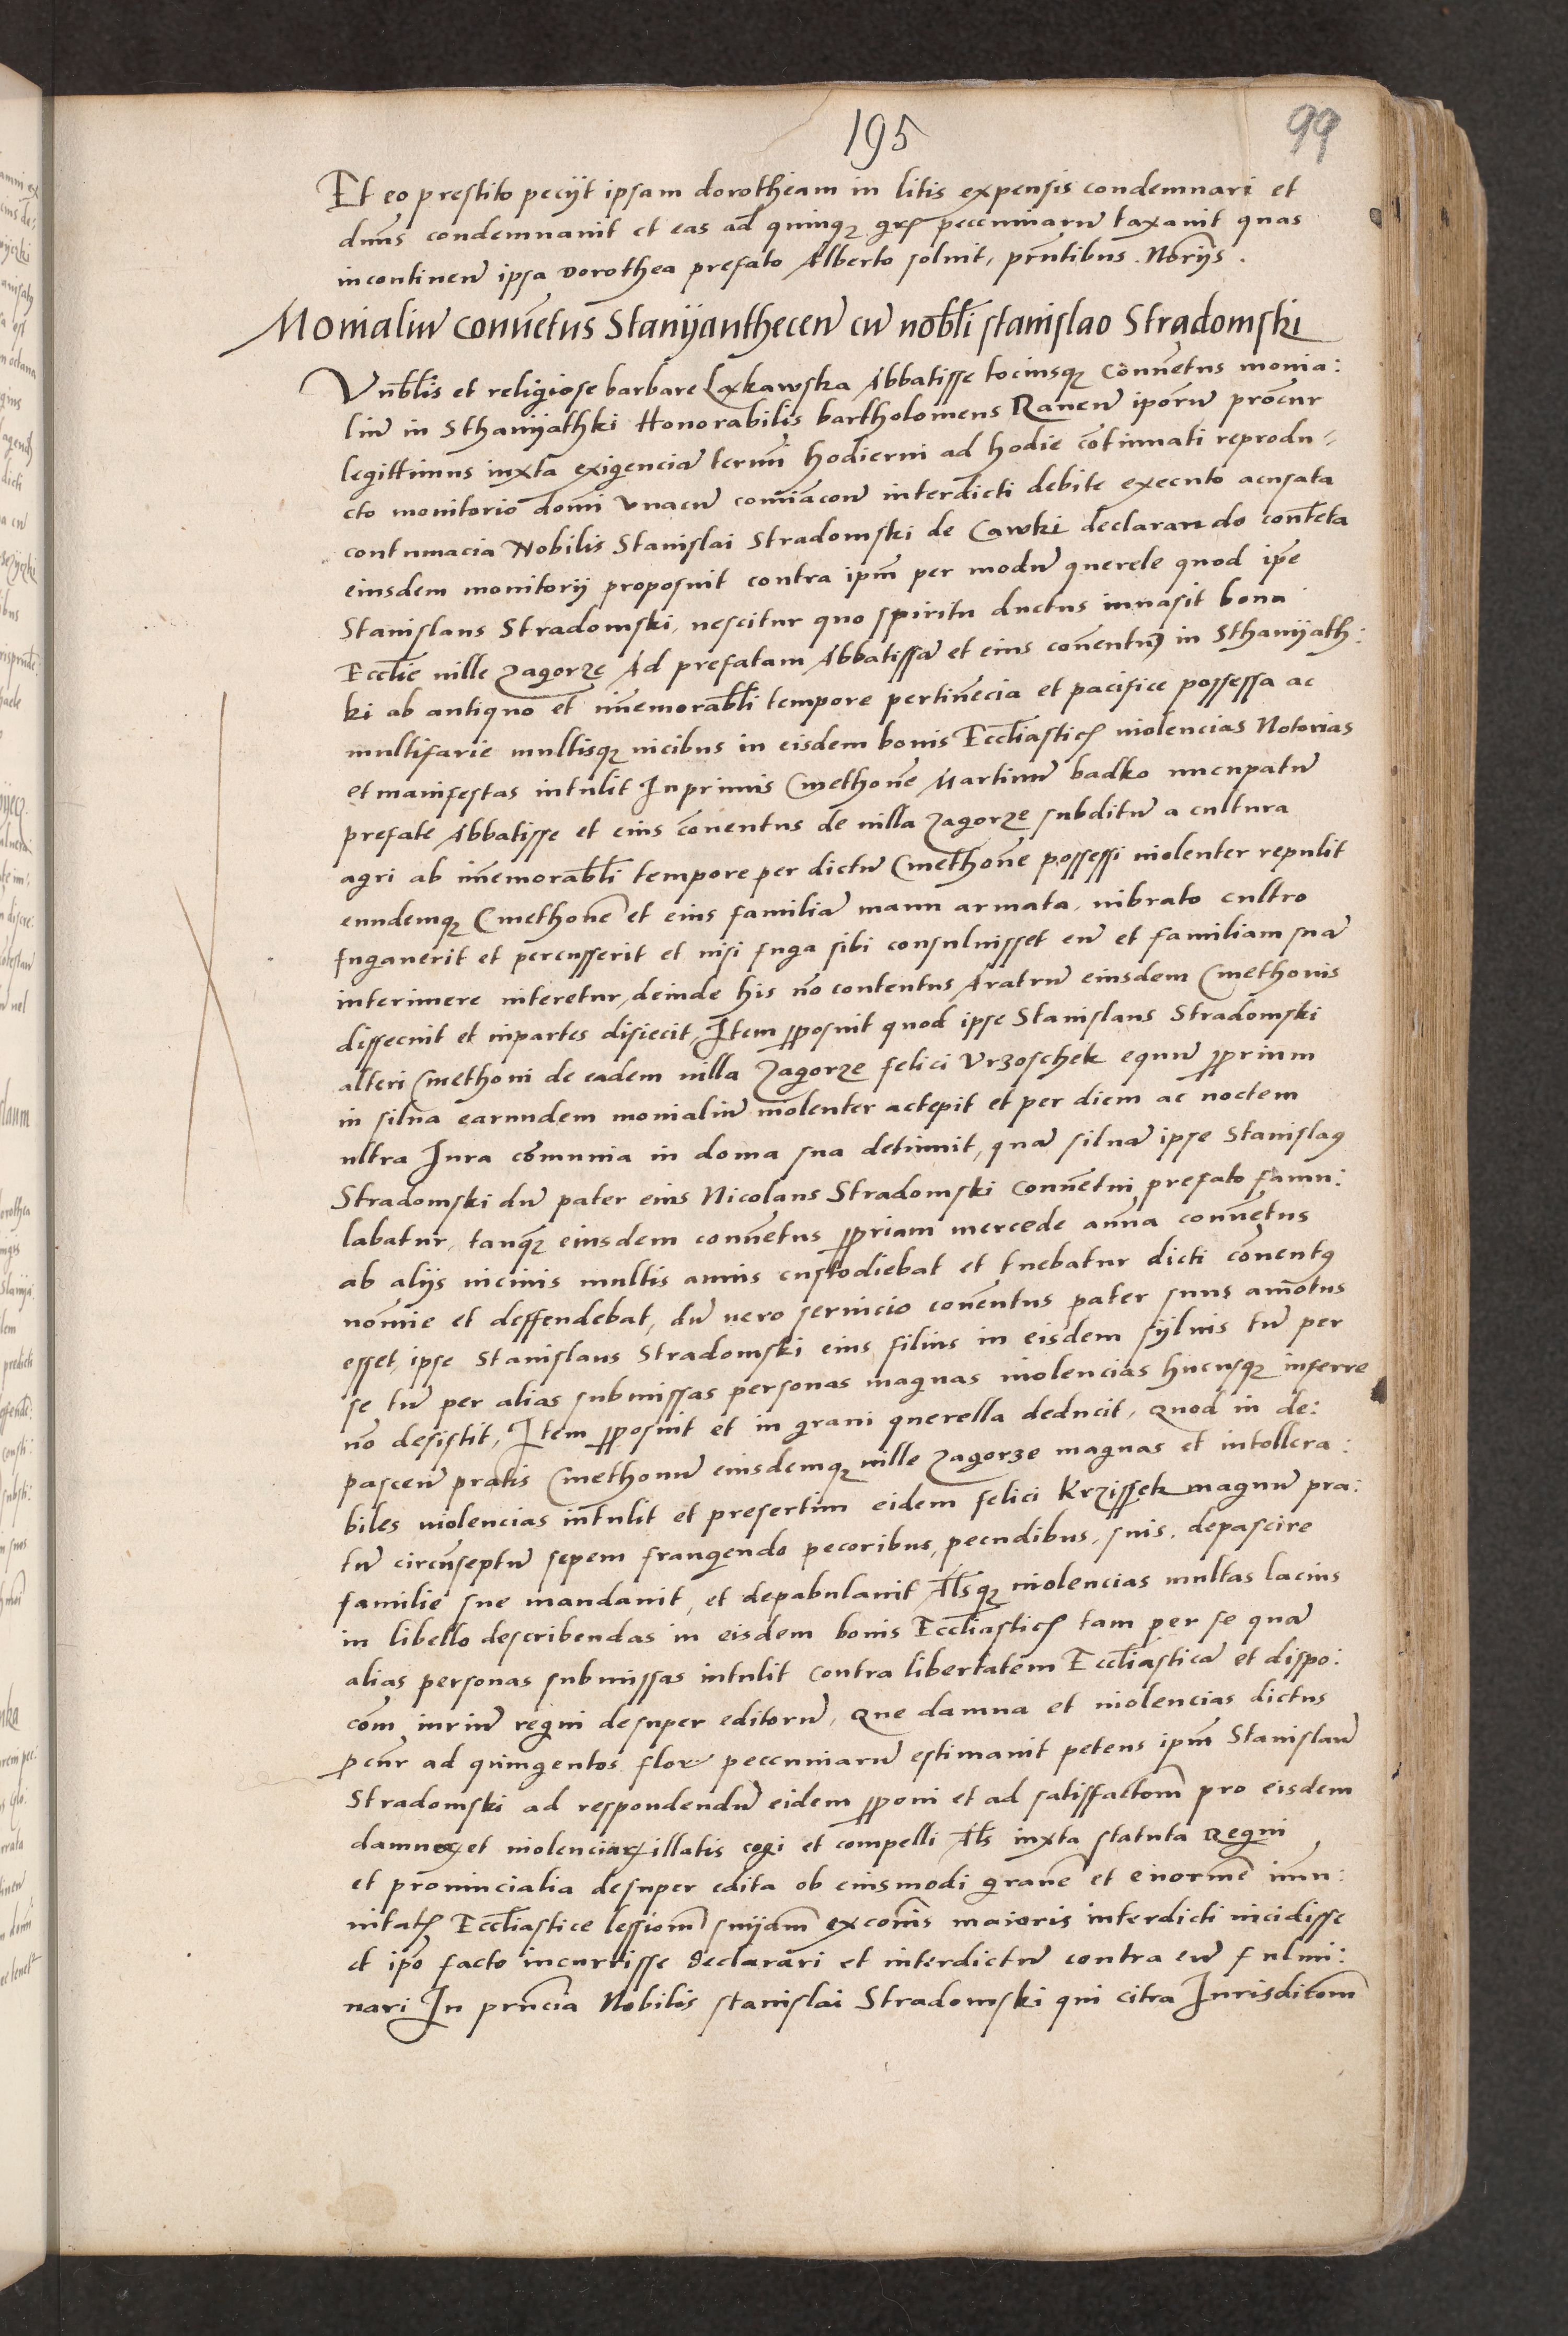 195
99
Et eo prestito peciit ipsam dorotheam in litis expensis condemnari et
dn̄us condemnauit et eas ad quinqꝫ grꝭ peccuniarū taxauit quas
incontinen̄ ipsa Dorothea prefato Alberto soluit, prn̄tibus. Notr̄ijs.
Monialiū conuētus Staniyanthecen̄ cū nobl̄i stanislao Stradomski
Vnbl̄is et religiose barbare Laxkawska Abbatisse tociusqꝫ Conuētus monia:
liū in Sthaniyathki Honorabilis bartholomeus Rauen̄ ipōrū procūr
legittimus iuxta exigenciā termī hodierni ad hodie cōtinuati reprodu⸗
cto monitorio domī vnacū comīacōne interdicti debite executo acusata
contumacia Nobilis Stanislai Stradomski de Cawki declarando contēta
eiusdem monitorij proposuit contra ipm̄ per modū querele quod ipē
Stanislaus Stradomski, nescitur quo spiritu ductus inuasit bona
Eccl̄ie uille Zagorze Ad prefatam Abbatissā et eius conuentū in Sthaniyath:
ki ab antiquo et īmemorabl̄i tempore pertinēcia et pacifice possessa ac
multifarie multisqꝫ uicibus in eisdem bonis Eccl̄iasticꝭ uiolencias Notorias
et manifestas intulit Inprimis Cmethonē Martinū badko nūcupatū
prefate Abbatisse et eius Conuentus de uilla Zagorze subditū a cultura
agri ab īmemorabl̄i tempore per dictū Cmethonē possessi uiolenter repulit
eundemqꝫ Cmethonē et eius familiā manu armata, uibrato cultro
fugauerit et percusserit et nisi fuga sibi consuluisset eū et familiam suā
interimere niteretur, deinde his nō contentus Aratrū eiusdem Cmethonis
dissecuit et inpartes disiecit, Item ꝓposuit quod ipse Stanislaus Stradomski
alteri Cmethoni de eadem uilla Zagorze felici Vrzoschek equū ꝓprium
in silua earundem monialiū uiolenter accepit et per diem ac noctem
ultra Iura cōmunia in doma sua detinuit, quā siluā ipse Stanislaꝯ
Stradomski dū pater eius Nicolaus Stradomski Conuētui prefato famu:
labatur, tanqꝫ eiusdem conuētus ꝓpriam mercede anūa conuētus
ab alijs uicinis multis annis custodiebat et tuebatur dicti cōuentꝯ
nomīe et deffendebat, dū uero seruicio conuētus pater suus amotus
esset, ipse Stanislaus Stradomski eius filius in eisdem syluis tū per
se tū per alias submissas personas magnas uiolencias hucusqꝫ inferre
nō desistit, Item ꝓposuit et in graui querella deducit, Quod in de:
pascen̄ pratis Cmethonū eiusdemqꝫ uille Zagorze magnas et intollera:
biles uiolencias intulit et presertim eidem felici Krzissek magnū pra:
tū circūseptū sepem frangendo pecoribus, pecudibus, suis, depascire
familie sue mandauit, et depabulauit Al̄sqꝫ uiolencias multas lacius
in libello describendas in eisdem bonis Eccl̄iasticꝭ tam per se quā
alias personas submissas intulit Contra libertatem Eccl̄iasticā et dispo:
cōm iuriū regni desuper editorū, Que damna et uiolencias dictus
ꝓcūr ad quingentos flor peccuniarū estimauit petens ipm̄ Stanislaū
Stradomski ad respondendū eidem ꝓponi et ad satisfactōm pro eisdem
damnoꝝ et uiolenciaꝝ illatis cogi et compelli Al̄s iuxta statuta Regni
et prouincialia desuper edita ob eiusmodi grauē et enormē imu:
nitatꝭ Eccl̄iastice lessionē sniam̄ excōnis maioris interdicti incidisse
et ipō facto incurrisse declarari et interdictū contra eū fulmi:
nari In prn̄cia Nobilis Stanislai Stradomski qui citra Iurisditōm